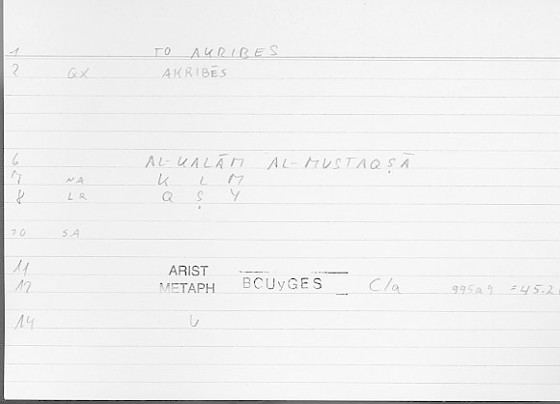 1 TO AKRIBES
2 GX AKRIBĒS
6 AL-KALĀM AL-MUSTAQṢĀ
7 NA K L M
8 LR Q Ṣ Y
10 SA
11 ARIST
12 METAPH BOUyGES C/a 995a9 =45.2
14 U